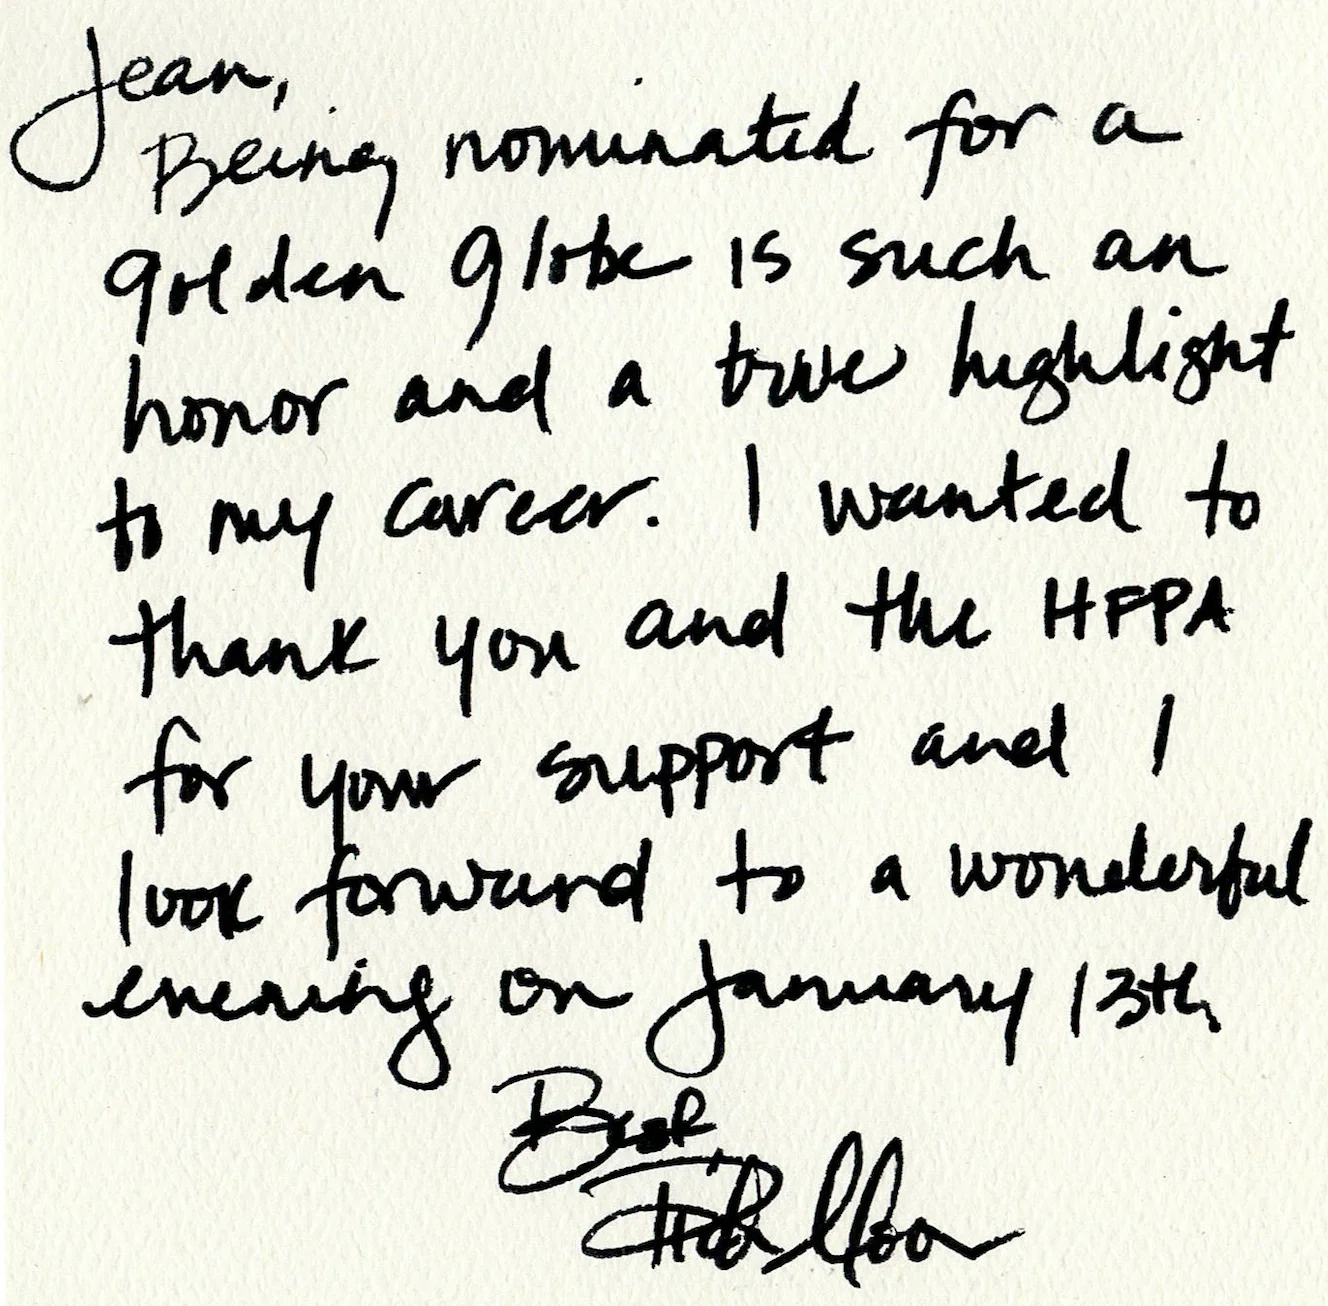 Jean,
Being nominated for a
golden globe is such an
honor and a true highlight
to my career. I wanted to
thank you and the HFPA
for your support and I
look forward to a wonderful
evening on January 13th
Best,